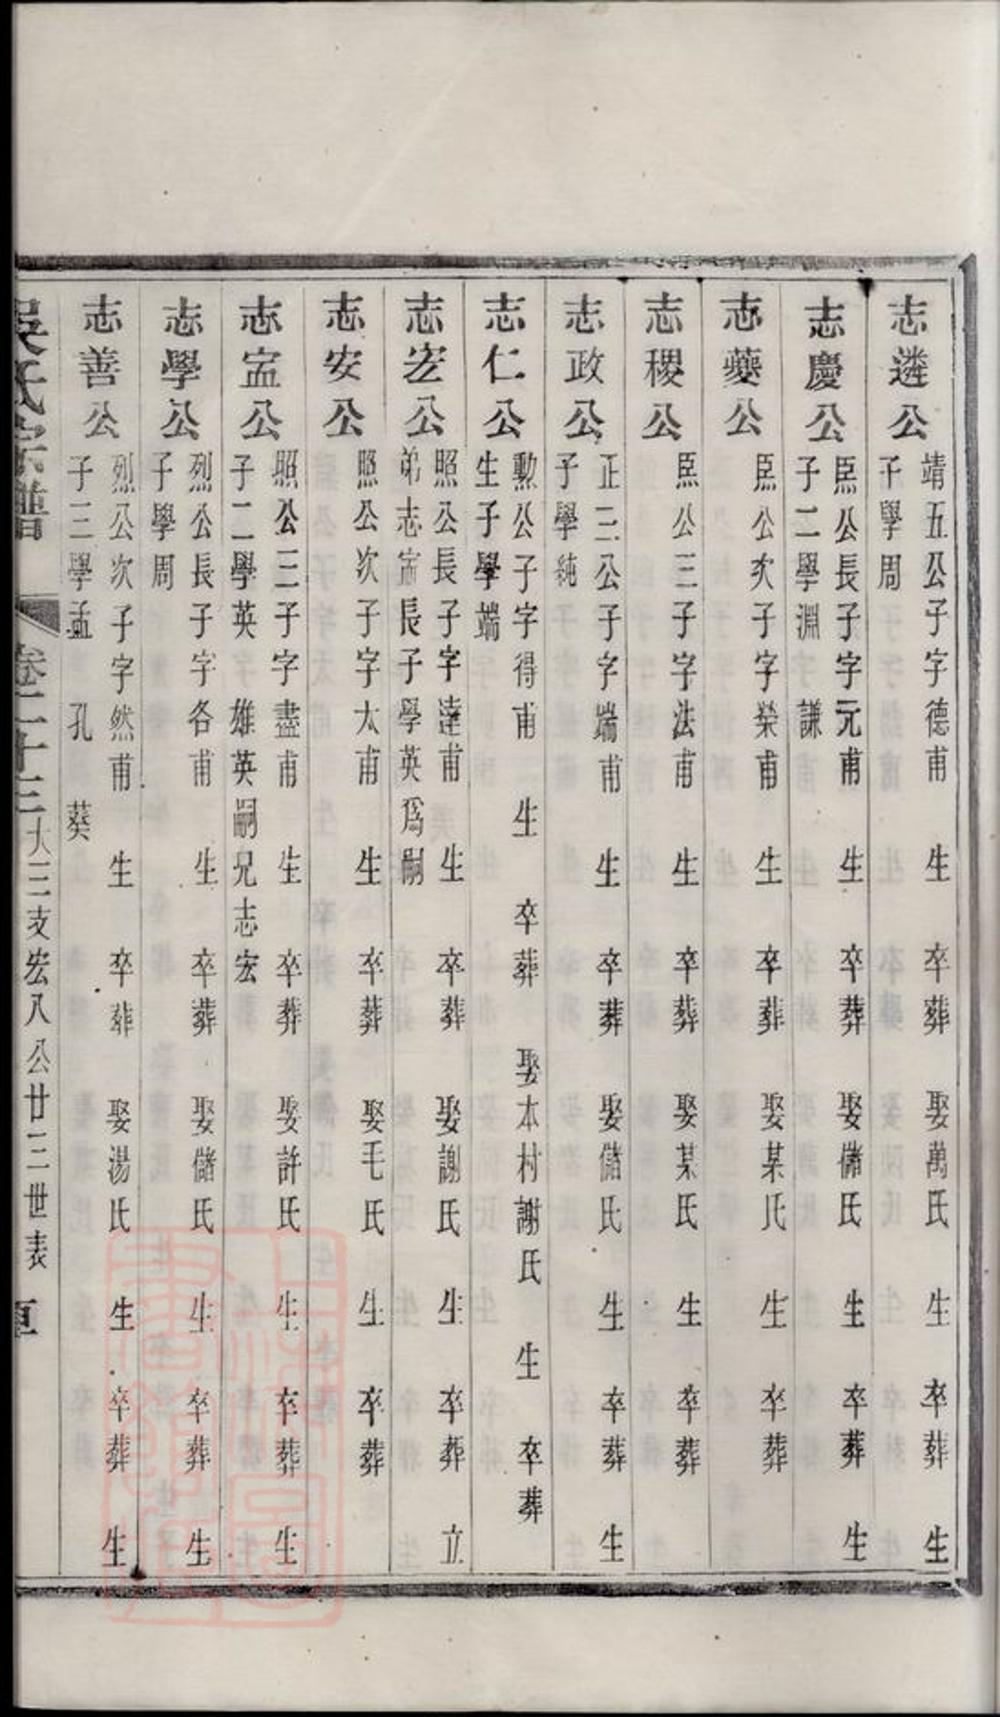 志遴公
靖五公子字德甫 生 卒葬 娶萬氏 生 卒葬 生
子學周
志慶公
臣公長子字元甫 生 卒葬 娶儲氏 生 卒葬 生
子二學淵 謙
志藥公
臣公次子字榮甫 生 卒葬 娶某氏 生 卒葬
志稷公
臣公三子字法甫 生 卒葬 娶某氏 生 卒葬
志政公
正二公子字端甫 生 卒葬 娶儲氏 生 卒葬 生
子學純
志仁公
勲公子字得甫 生 卒葬 娶本村謝氏 生 卒葬
生子學端
志宏公
照公長子字達甫 生 卒葬 娶謝氏 生 卒葬 立
弟志寍長子學英爲嗣
志安公
照公次子字太甫 生 卒葬 娶毛氏 生 卒葬
志寍公
照公三子字盡甫 生 卒葬 娶許氏 生 卒葬 生
子二學英 雄英嗣兄志宏
志學公
烈公長子字各甫 生 卒葬 娶儲氏 生 卒葬 生
子學周
志善公
烈公次子字然甫 生 卒葬 娶湯氏 生 卒葬 生
子三學孟 孔 葵
吳氏宗譜 卷二十三 大三支宏八公廿三世表